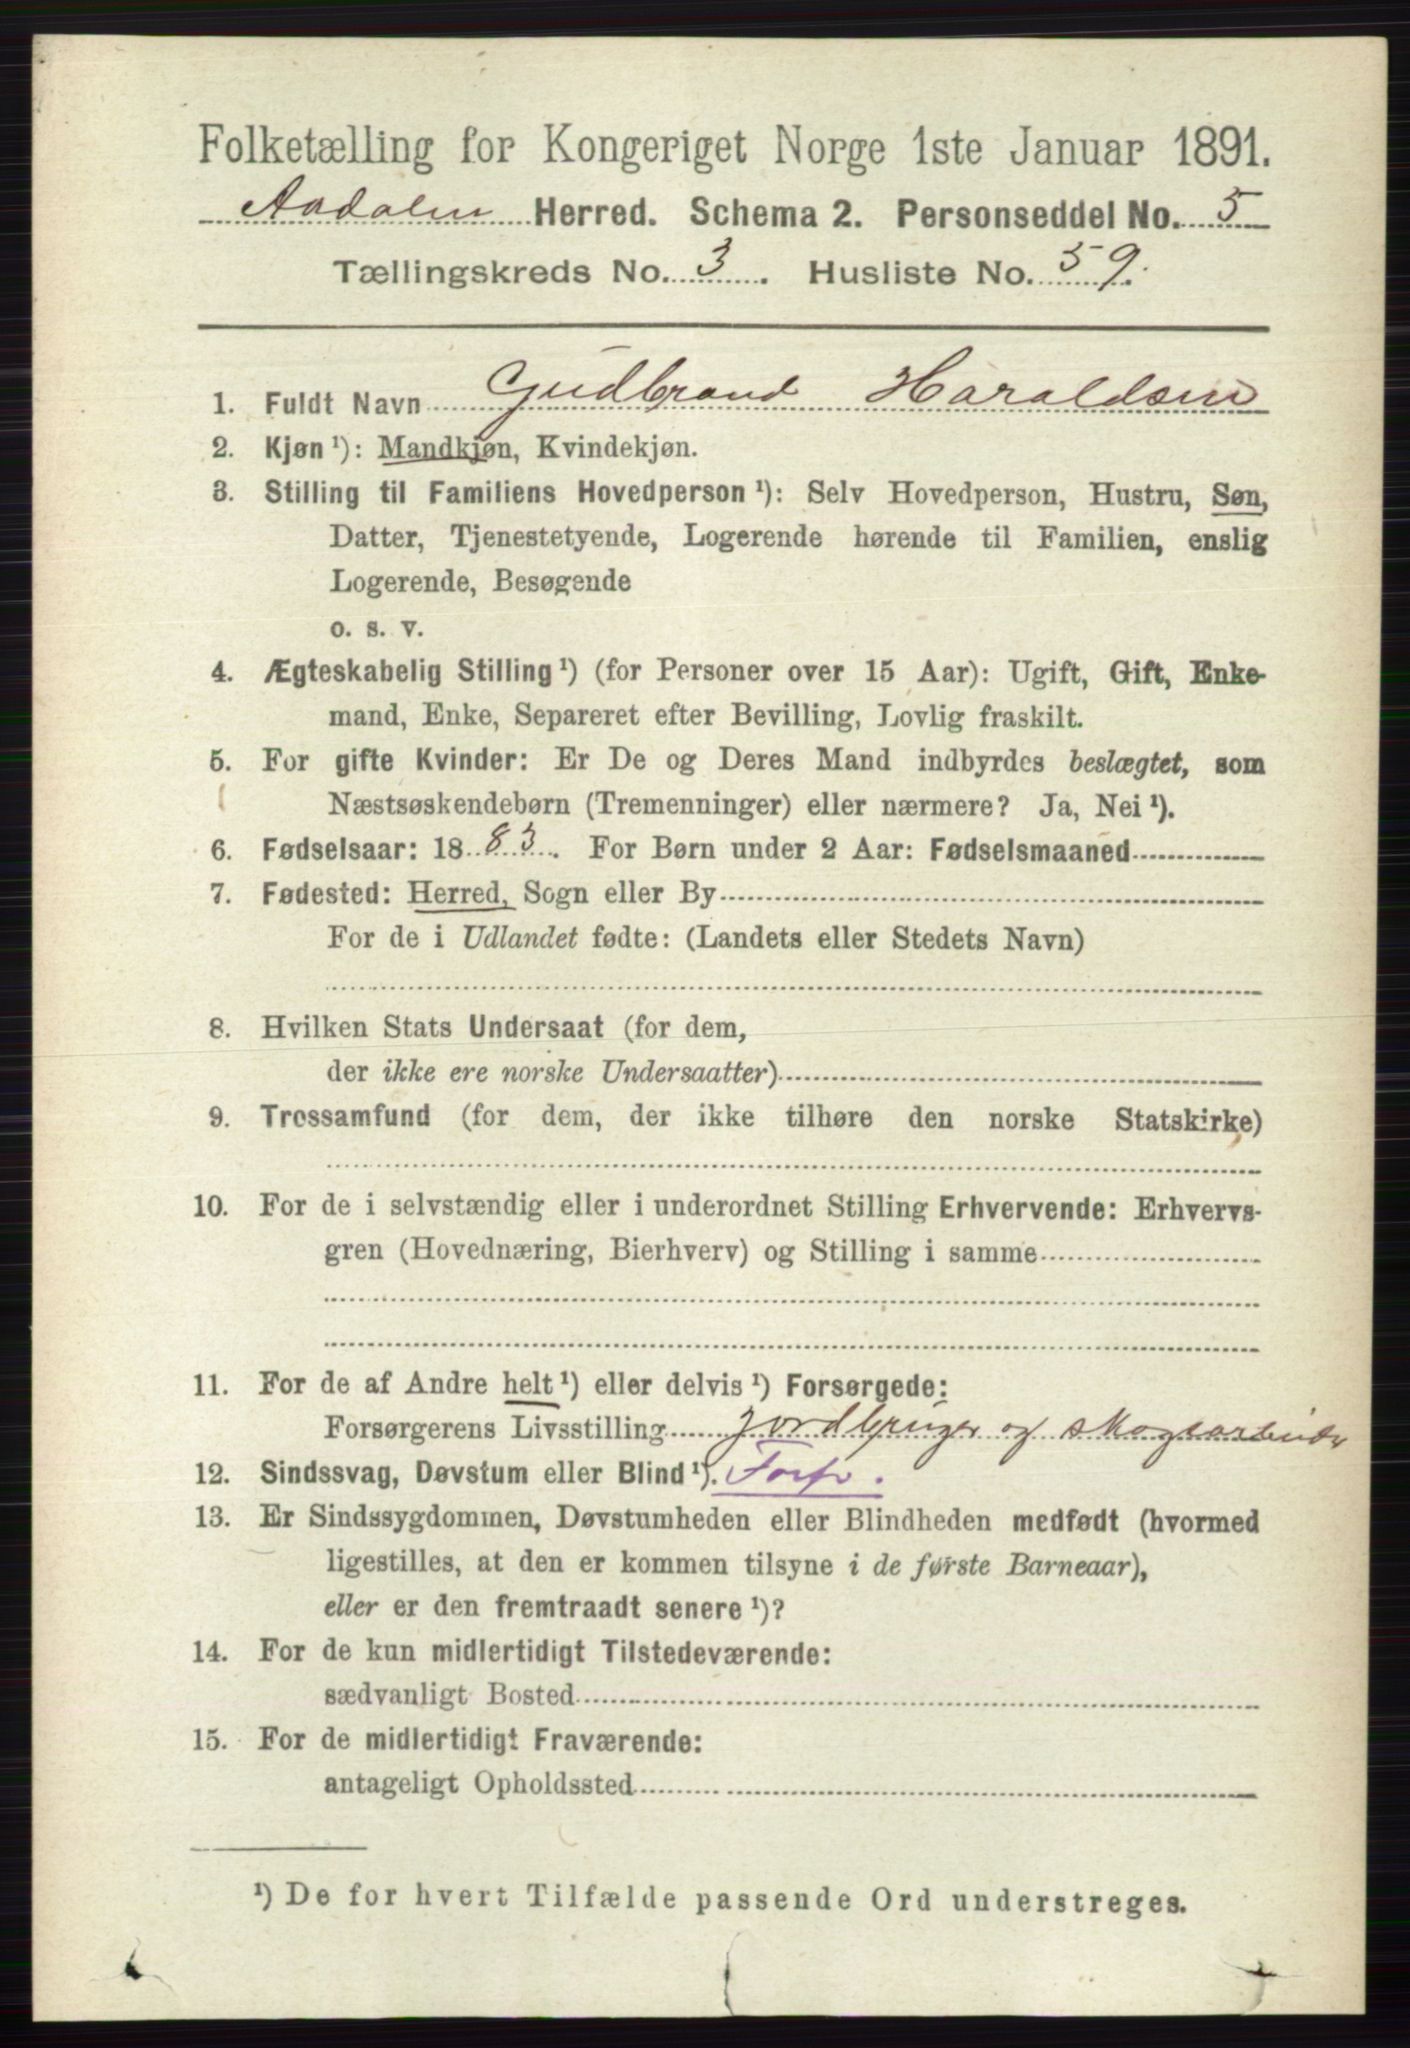 Folketælling for Kongeriget Norge 1ste Januar 1891.
Aadalen Herred. Schema 2. Personseddel No. 5
Tællingskreds No. 3. Husliste No. 59.
1. Fuldt Navn Gudbrand Haraldsen
2. Kjøn ¹): Mandkjøn, Kvindekjøn.
3. Stilling til Familiens Hovedperson ¹): Selv Hovedperson, Hustru, Søn,
Datter, Tjenestetyende, Logerende hørende til Familien, enslig
Logerende, Besøgende
o. s. v.
4. Ægteskabelig Stilling ¹) (for Personer over 15 Aar): Ugift, Gift, Enke-
mand, Enke, Separeret efter Bevilling, Lovlig fraskilt.
5. For gifte Kvinder: Er De og Deres Mand indbyrdes beslægtet, som
Næstsøskendebørn (Tremenninger) eller nærmere? Ja, Nei ¹).
6. Fødselsaar: 1883. For Børn under 2 Aar: Fødselsmaaned
7. Fødested: Herred, Sogn eller By
For de i Udlandet fødte: (Landets eller Stedets Navn)
8. Hvilken Stats Undersaat (for dem,
der ikke ere norske Undersaatter)
9. Trossamfund (for dem, der ikke tilhøre den norske Statskirke)
10. For de i selvstændig eller i underordnet Stilling Erhvervende: Erhvervs-
gren (Hovednæring, Bierhverv) og Stilling i samme
11. For de af Andre helt ¹) eller delvis ¹) Forsørgede:
Forsørgerens Livsstilling Jordbruger og skogsarbeider
12. Sindssvag, Døvstum eller Blind ¹). Forfr.
13. Er Sindssygdommen, Døvstumheden eller Blindheden medfødt (hvormed
ligestilles, at den er kommen tilsyne i de første Barneaar),
eller er den fremtraadt senere ¹)?
14. For de kun midlertidigt Tilstedeværende:
sædvanligt Bosted
15. For de midlertidigt Fraværende:
antageligt Opholdssted
¹) De for hvert Tilfælde passende Ord understreges.